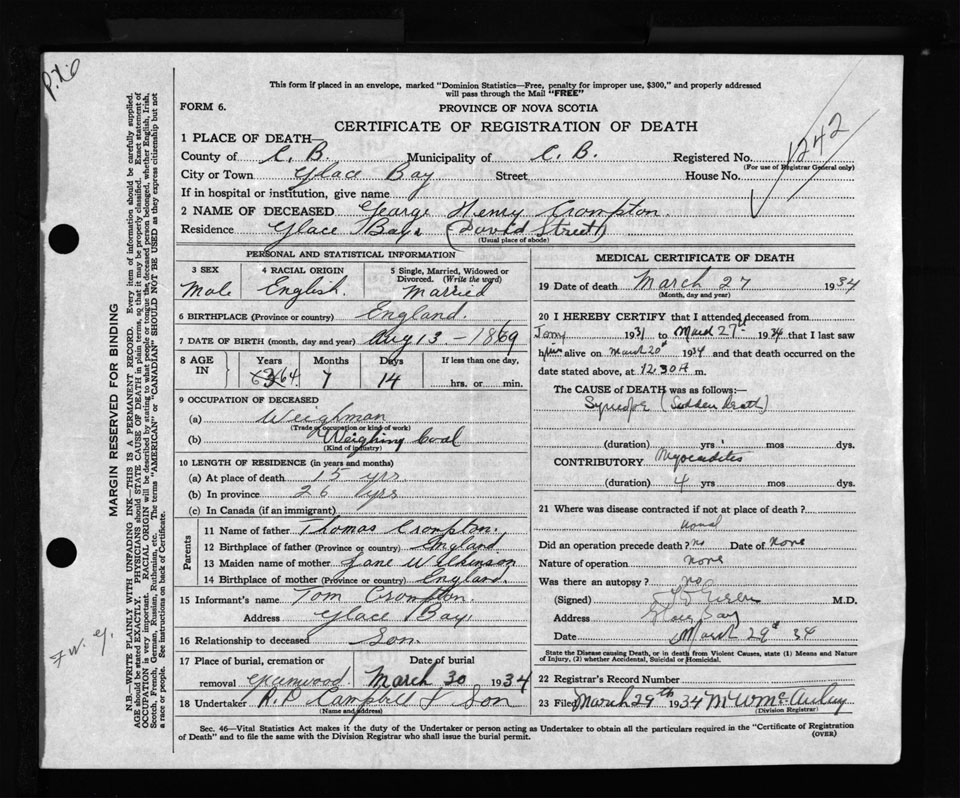 This form if placed in an envelope, marked "Dominion Statistics—Free, penalty for improper use, $300," and properly addressed
will pass through the Mail "FREE"
FORM 6.
PROVINCE OF NOVA SCOTIA
CERTIFICATE OF REGISTRATION OF DEATH
1 PLACE OF DEATH—
County of C. B. Municipality of C. B. Registered No. 1242
(For use of Registrar General only)
City or Town Glace Bay Street House No.
If in hospital or institution, give name
2 NAME OF DECEASED George Henry Crompton.
Residence Glace Bay (David Street)
(Usual place of abode)
PERSONAL AND STATISTICAL INFORMATION
3 SEX 4 RACIAL ORIGIN 5 Single, Married, Widowed or
Divorced. (Write the word)
Male English. Married
6 BIRTHPLACE (Province or country) England.
7 DATE OF BIRTH (month, day and year) Aug 13 - 1869
8 AGE IN Years Months Days If less than one day,
64 7 14 hrs. or min.
9 OCCUPATION OF DECEASED
(a) Weighman
(Trade, occupation or kind of work)
(b) Weighing Coal
(Kind of industry)
10 LENGTH OF RESIDENCE (in years and months)
(a) At place of death 15 yrs
(b) In province 26 yrs
(c) In Canada (if an immigrant)
Parents
11 Name of father Thomas Crompton.
12 Birthplace of father (Province or country) England
13 Maiden name of mother Jane Wilkinson
14 Birthplace of mother (Province or country) England.
15 Informant's name Tom Crompton
Address Glace Bay
16 Relationship to deceased Son
17 Place of burial, cremation or Date of burial
removal Greenwood. March 30 1934
18 Undertaker A. P. Campbell & Son
(Name and address)
MEDICAL CERTIFICATE OF DEATH
19 Date of death March 27 1934
(Month, day and year)
20 I HEREBY CERTIFY that I attended deceased from
1931 to March 27 1934 that I last saw
him alive on March 20 1934 and that death occurred on the
date stated above, at 12.30 A m.
The CAUSE of DEATH was as follows:—
Syncope (Sudden Death)
(duration) yrs mos dys.
CONTRIBUTORY Myocarditis
(duration) 4 yrs mos dys.
21 Where was disease contracted if not at place of death?
Did an operation precede death? no Date of none
Nature of operation none
Was there an autopsy? no
(Signed) M.D.
Address Glace Bay
Date March 29 34
State the Disease causing Death, or in death from Violent Causes, state (1) Means and Nature
of Injury, (2) whether Accidental, Suicidal or Homicidal.
22 Registrar's Record Number
23 Filed March 29th 1934 M W McAulay
(Division Registrar)
Sec. 46—Vital Statistics Act makes it the duty of the Undertaker or person acting as Undertaker to obtain all the particulars required in the "Certificate of Registration
of Death" and to file the same with the Division Registrar who shall issue the burial permit.
(OVER)
MARGIN RESERVED FOR BINDING
N.B.—WRITE PLAINLY WITH UNFADING INK—THIS IS A PERMANENT RECORD. Every item of information should be carefully supplied.
AGE should be stated EXACTLY. PHYSICIANS should STATE CAUSE OF DEATH in plain terms, so that it may be properly classified. Exact statement of
OCCUPATION is very important. RACIAL ORIGIN will be described by stating to what people or tongue the deceased person belonged, whether English, Irish,
Scotch, French, German, Russian, Ruthenian, etc. The terms "AMERICAN" or "CANADIAN" SHOULD NOT BE USED as they express citizenship but not
a race or people. See instructions on back of Certificate.